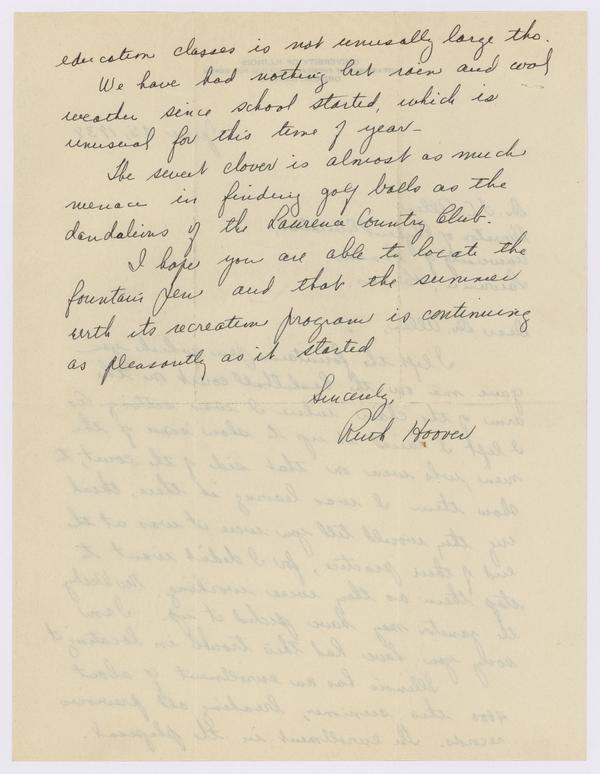 education classes is not unusually large tho.
We have had nothing but rain and cool
weather since school started, which is
unusual for this time of year—
The sweet clover is almost as much
menace in finding golf balls as the
dandaleins of the Lawrence Country Club.
I hope you are able to locate the
fountain pen and that the summer
with its recreation program is continuing
as pleasantly as it started
Sincerely,
Ruth Hoover